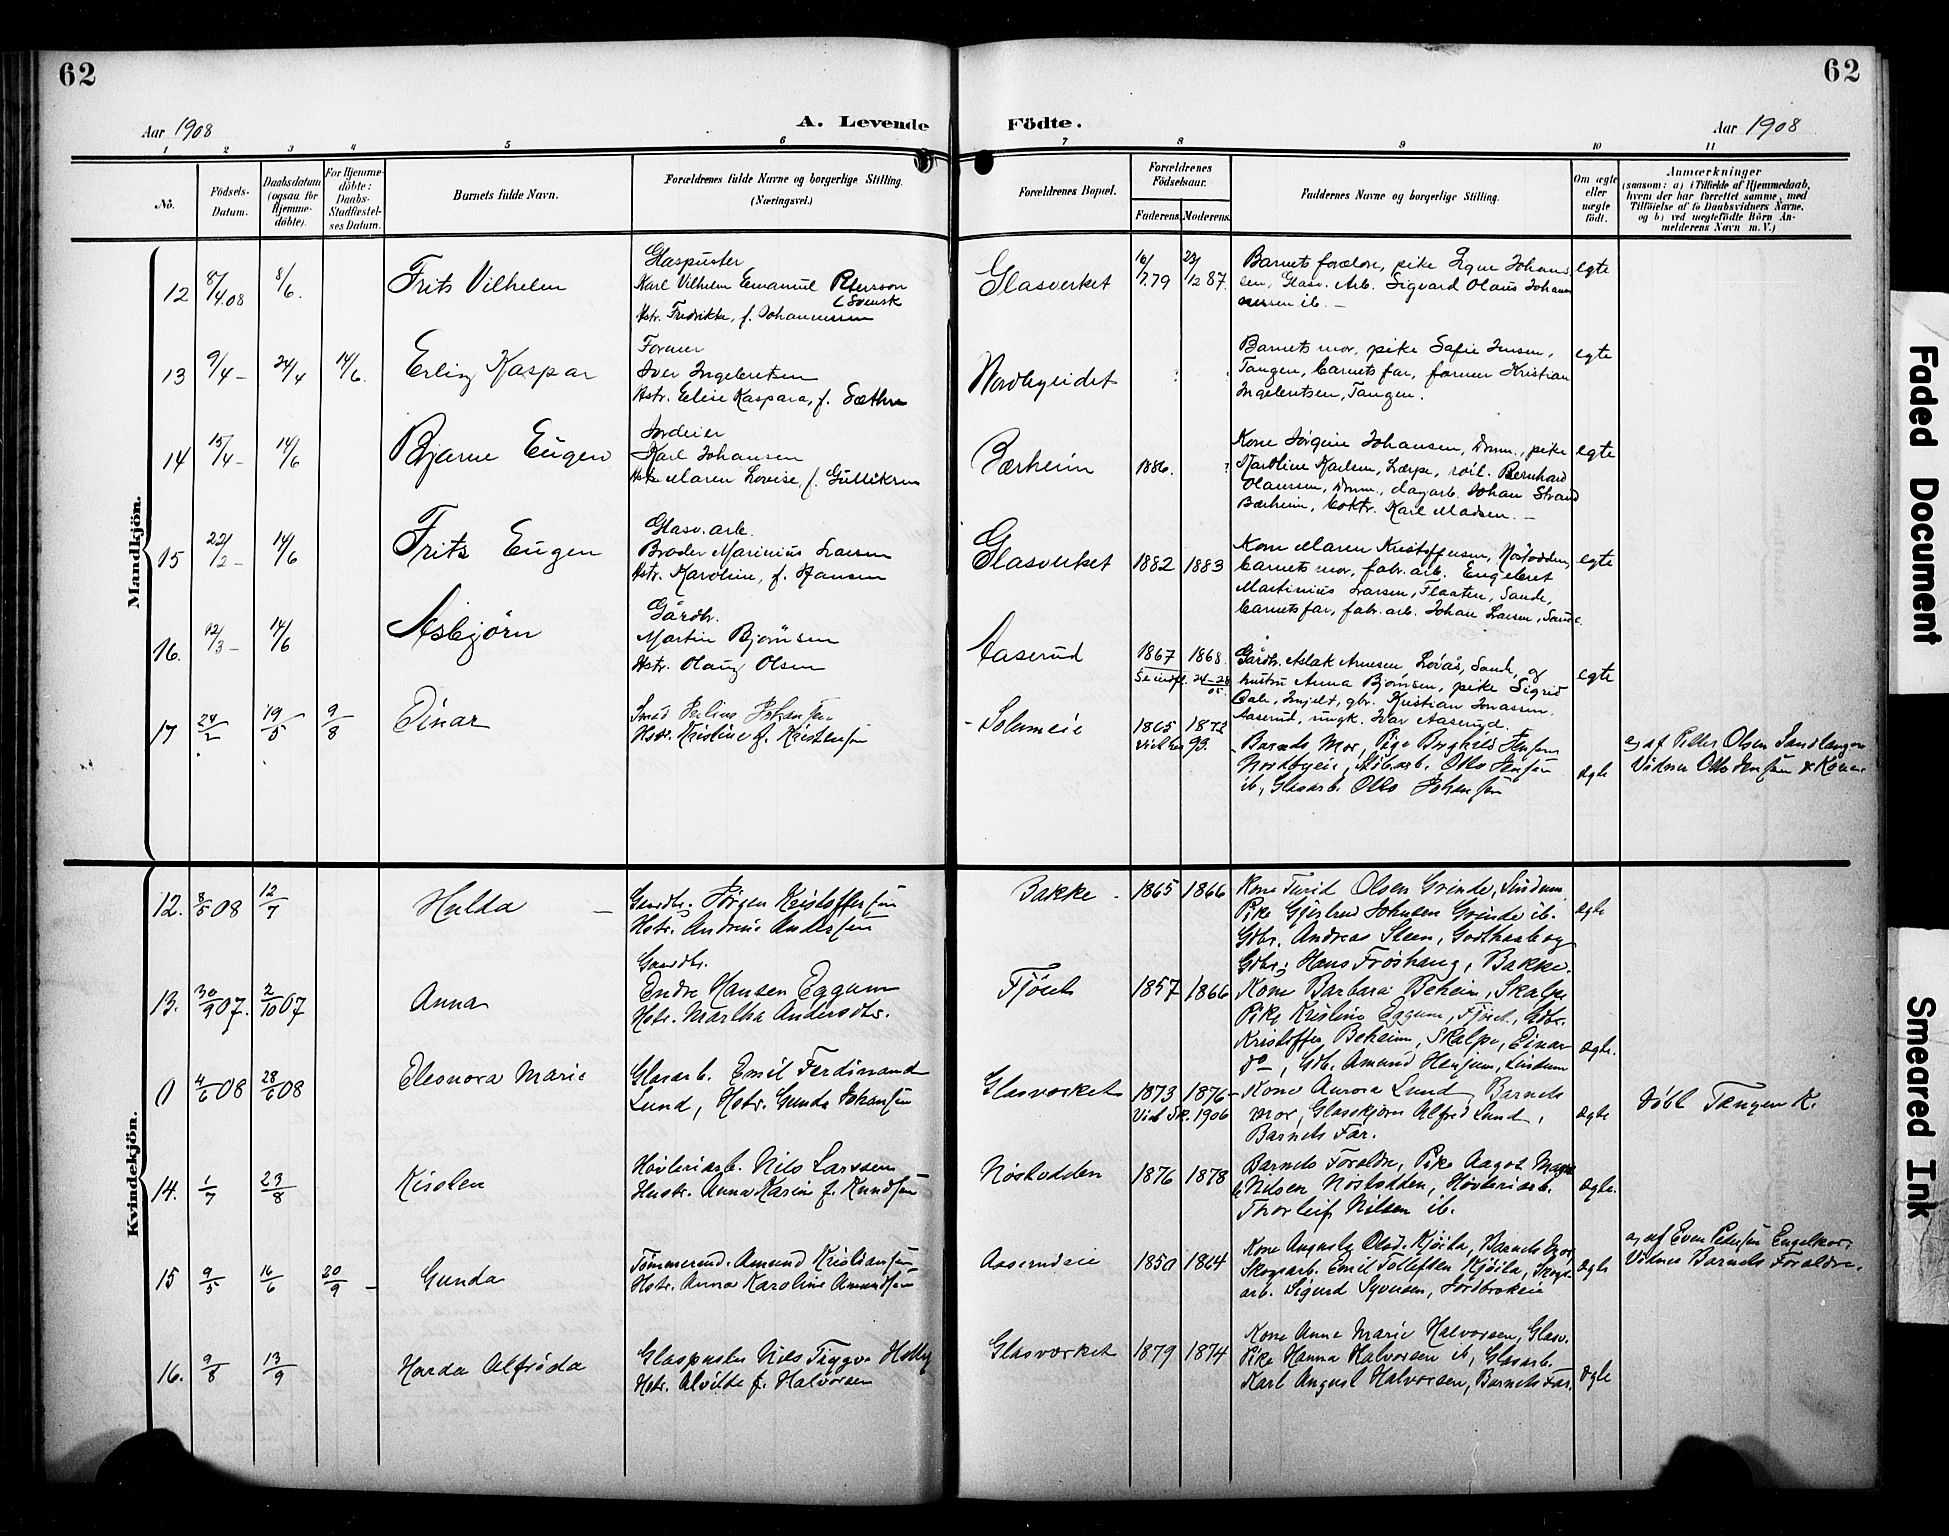 62
62
Aar 1908
A. Levende
Födte.
Aar 1908
1
2
3
4
5
6
7
8
9
10
11
No.
Födsels-
Datum.
Daabsdatum
(ogsaa for
Hjemme-
döbte).
For Hjemme-
döbte:
Daabs-
Stadfæstel-
ses Datum.
Barnets fulde Navn.
Forældrenes fulde Navne og borgerlige Stilling.
(Næringsvei.)
Forældrenes Bopæl.
Forældrenes
Födselsaar.
Faderens.
Moderens.
Faddernes Navne og borgerlige Stilling.
Om ægte
eller
uægte
födt.
Anmærkninger
(saasom: a) i Tilfælde af Hjemmedaab,
hvem der har forrettet samme, med
Tilföielse af to Daabsvidners Navne,
og b) ved uægtefödte Börn An-
melderens Navn m. V.)
Mandkjön.
12 8/4.08 8/6.
Frits Vilhelm
Glaspuster
Karl Vilhelm Emanuel Petersson
(Svensk
Hstr. Fredrikke, f. Johannessen
Glasverket
16/7.79 23/12 87.
Barnets forældre, pike Johann
sen, Glasv. Arb. Sigvard Olaus Johan
nessen ib. –
egte
13 9/4 – 24/4 14/6.
Erling Kaspar
Former
Iver Ingebretsen
Hstr. Elise Kaspara, f. Sæthre
Nordbyeidet
Barnets mor, pike Sofie Jensen,
Tangen, barnets far, former Kristian
Ingebretsen, Tangen.
egte
14 15/4 – 14/6
Bjarne Eugen
Jordeier
Karl Johansen
Hstr. Maren Lovise, f. Gulliksen
Bærheim
1886. ?
Kone Jørgine Johansen, Drmn., pike
Karoline Karlsen, Bernhard
Olaussen, Drmn., dagarb. Johan Strand
Bærheim, Karl Madsen. –
egte
15 22/2 – 14/6
Frits Eugen
Glasv. arb.
Broder Marinius Larsen
Hstr. Karoline, f. Hansen
Glasverket
1882 1883
Kone Maren Kristoffersen, Nøstodden,
barnets mor, fabr. arb. Engebret
Martinius Larsen, Flaaten, Sande,
barnets far, fabr. arb. Johan Larsen, Sande.
egte
16. 12/3 – 14/6
Asbjörn
Gårdbr.
Martin Bjørnsen
Hstr. Olaug Olsen
Aaserud
1867 1868
24–28/05.
Gårdbr. Aslak Arnesen Løvås, Sande, og
hustru Anna Bjørnsen, pike Sigrid
gbr. Kristian Jonassen
Aaserud, ungk. Ivar Aaserud.
egte
17 24/2 19/5 9/8
Einar
Smed Julius Johansen
Hstr. Kristine f. Kristensen
– Solumeie
1865 1872
99.
Barnets Mor, Pige Borghild Jensen
Nordbyeie, Otto Jensen
ib, Glasarb. Otto Johansen
ægte
a) af Peter Olsen Sandtangen
Vidner Otto Jensen & Kone.
Kvindekjön.
12. 3/5 08 12/7
Hulda
Gaardbr. Jørgen Kristoffersen
Hstr. Andrine Andersen
Bakke
1865 1866
Kone Turid Olsen Grinde, Lindum
Pike Gjertrud Johnsen Grinde ib.
Gdbr. Andreas Steen, Godthaab og
Gdbr. Hans Frøshaug, Bakke.
ægte
13. 30/9 07. 2/10 07
Anna
Gaardbr.
Endre Hansen Eggum
Hstr. Martha Andersdtr.
Fjöset
1857 1866
Kone Barbara Beheim, Skalpe
Pike Kristine Eggum, Fjöset, Gdbr.
Kristoffer Beheim, Skalpe, Einar
do –, Gdb. Amund Horjum, Lindum
ægte.
0 4/6 08 28/6 08
Eleonora Marie
Glasarb. Emil Ferdinand
Lund, Hstr. Gunda Johansen
Glasværket
1873 1876
1906
Kone Aurora Lund, Barnets
mor, Glasskjærer Alfred Lund,
Barnets Far.
ægte
Döbt Tangen K.
14. 1/7 23/8
Kirsten
Høvleriarb. Nils Larssen
Hustr. Anna Karine f. Knudsen
Nøstodden
1876 1878
Barnets Forældre, Pike Aagot
Nilsen Nøstodden, Høvleriarb.
Thorleif Nilsen ib.
ægte.
15 9/5 16/6 20/9 –
Gunda
Tømmermd. Amund Kristiansen
Hstr. Anna Karoline Amundsen
Aaserudeie
1850 1864
Kone Olsd. Kjöila, Barnets
Skogsarb. Emil Tollefsen Kjöila, Skogs-
arb. Sigurd Syversen, Jordbrokeie
ægte
a) af Even Pedersen Engelkor,
Vidner Barnets Forældre.
16. 9/8 13/9
Harda Alfrida
Glaspuster Nils Trygve Holby
Hstr. Alvilde f. Halvorsen
Glasværket
1879 1874
Kone Anne Marie Halvorsen, Glasv.
Pike Hanna Halvorsen ib, Glasarb.
Karl August Halvorsen, Barnets Far.
ægte
Faded Document
Smeared Ink